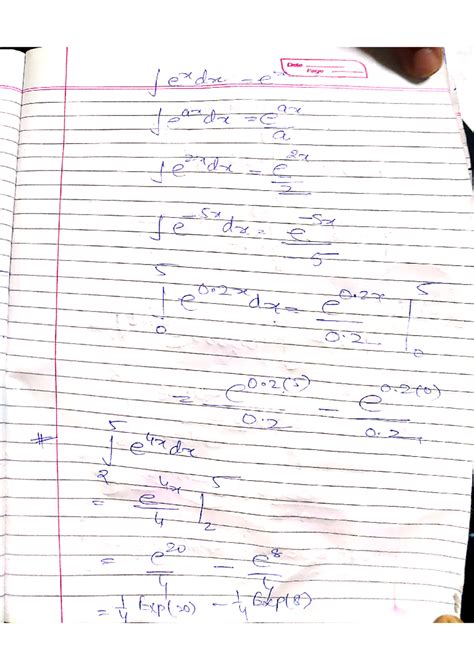 Date
Page
∫e^x dx = e^x
∫e^ax dx = e^ax/a
∫e^2x dx = e^2x/2
∫e^-5x dx = e^-5x/-5
∫₀⁵ e^0.2x dx = e^0.2x/0.2 |₀⁵
= e^0.2(5)/0.2 - e^0.2(0)/0.2
# ∫₂⁵ e^4x dx
= e^4x/4 |₂⁵
= e^20/4 - e^8/4
= 1/4 Exp(20) - 1/4 Exp(8)